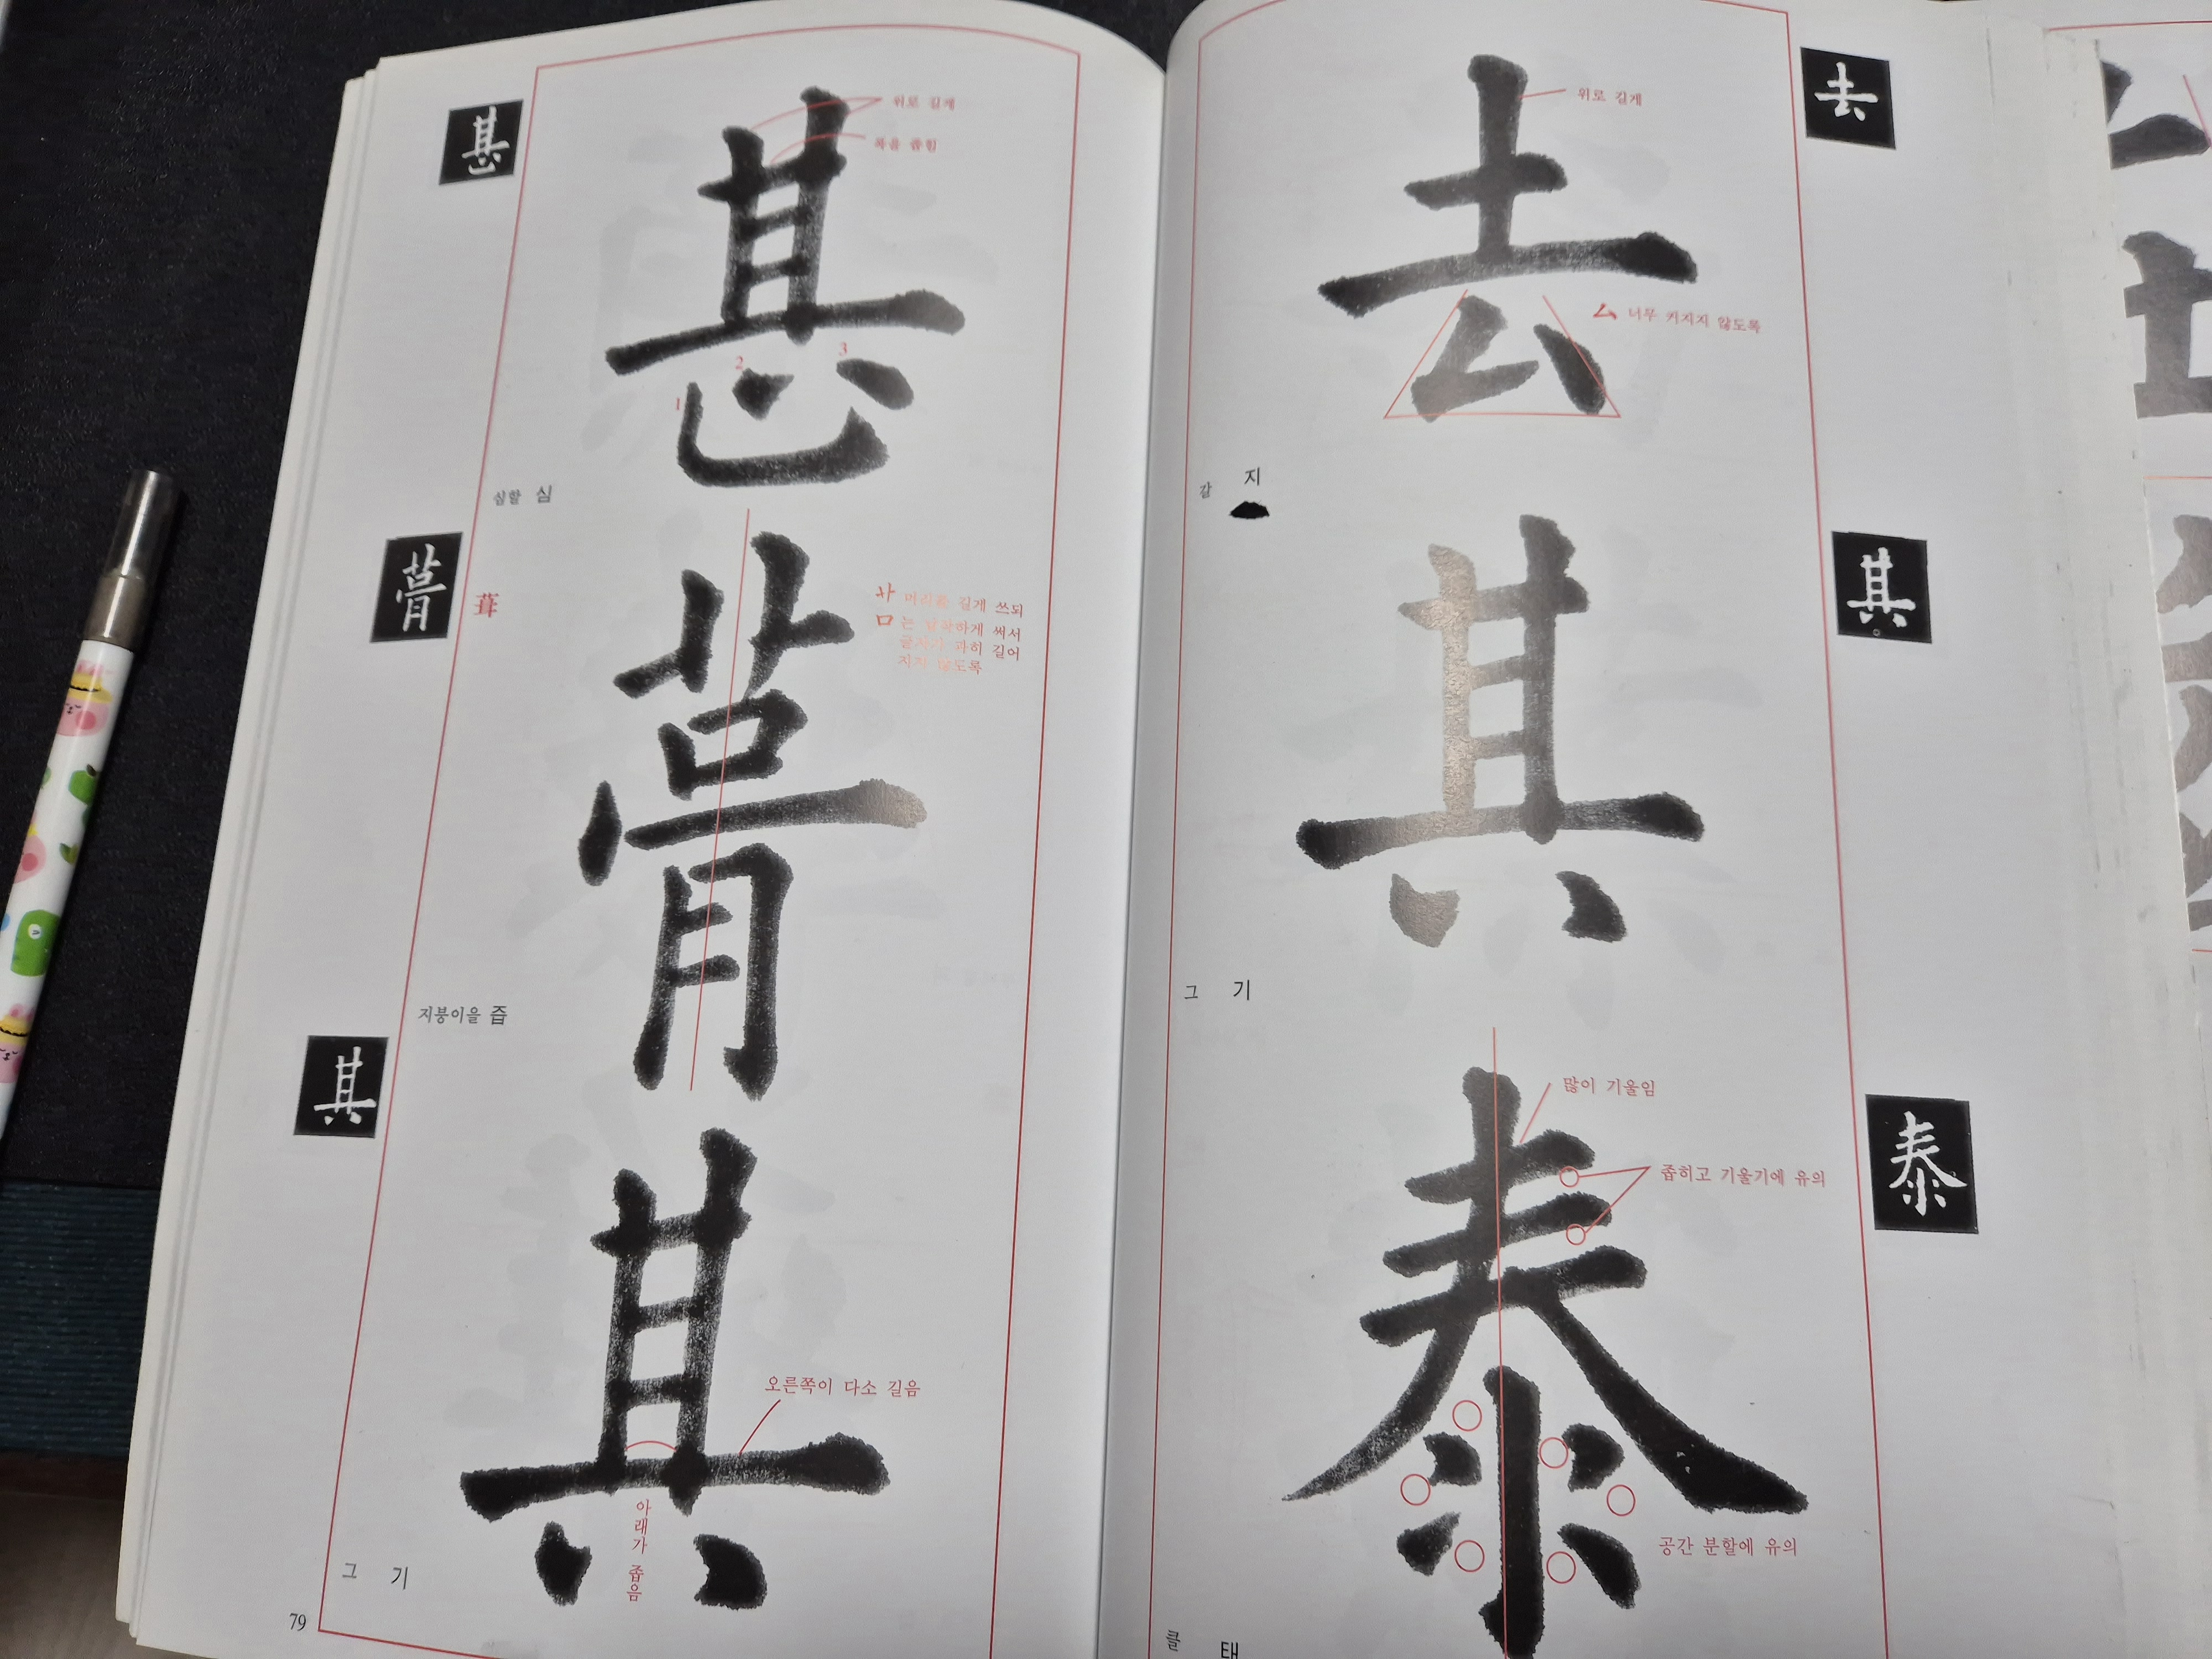 去
去
위로 길게
ム 너무 커지지 않도록
갈 지
其
其
그 기
泰
泰
많이 기울임
좁히고 기울기에 유의
공간 분할에 유의
클 태
甚
甚
위로 길게
폭을 좁힘
1
2
3
심할 심
葺
葺
葺
머리를 길게 쓰되
口는 납작하게 써서
글자가 과히 길어
지지 않도록
지붕이을 즙
其
其
오른쪽이 다소 길음
아래가 좁음
그 기
79